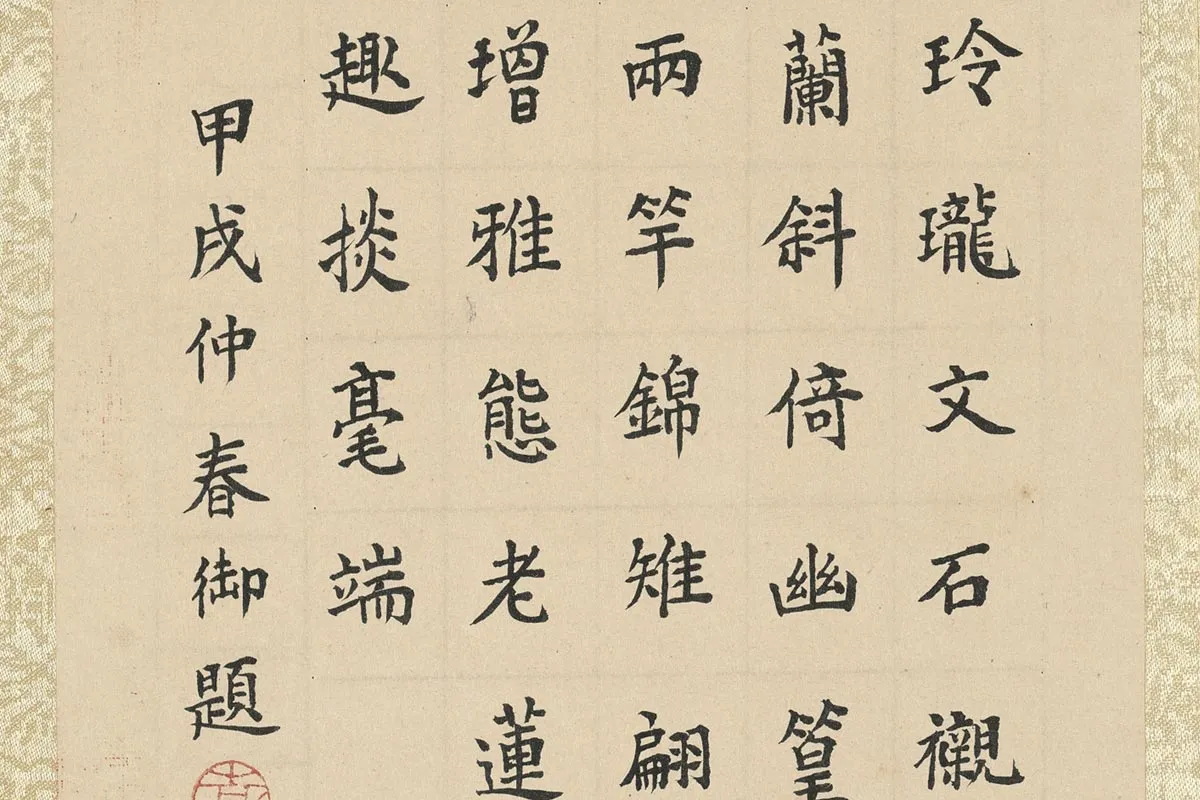 玲瓏文石襯
蘭斜倚幽篁
兩竿錦雉翩
增雅態老蓮
趣掞毫端
甲戌仲春御題